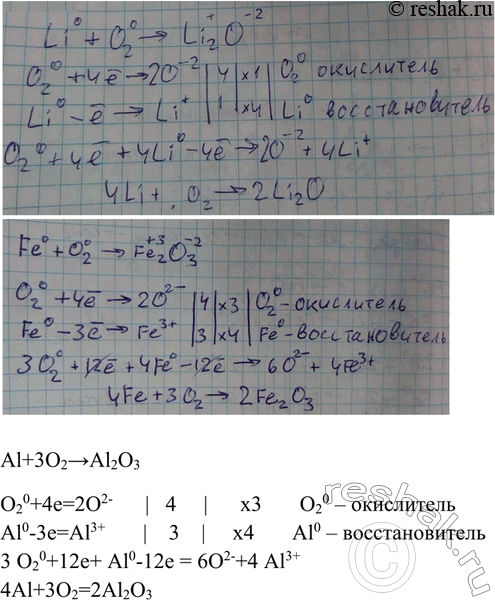 © reshak.ru
Li⁰ + O₂⁰ → Li₂⁺O⁻²
O₂⁰ + 4ē → 2O⁻² | 4 | x1 | O₂⁰ окислитель
Li⁰ - ē → Li⁺ | 1 | x4 | Li⁰ восстановитель
O₂⁰ + 4ē + 4Li⁰ - 4ē → 2O⁻² + 4Li⁺
4Li + O₂ → 2Li₂O
Fe⁰ + O₂⁰ → Fe₂⁺³O₃⁻²
O₂⁰ + 4ē → 2O²⁻ | 4 | x3 | O₂⁰ - окислитель
Fe⁰ - 3ē → Fe³⁺ | 3 | x4 | Fe⁰ - восстановитель
3O₂⁰ + 12ē + 4Fe⁰ - 12ē → 6O²⁻ + 4Fe³⁺
4Fe + 3O₂ → 2Fe₂O₃
Al+3O₂→Al₂O₃
O₂⁰+4e=2O²⁻ | 4 | x3 O₂⁰ – окислитель
Al⁰-3e=Al³⁺ | 3 | x4 Al⁰ – восстановитель
3 O₂⁰+12e+ Al⁰-12e = 6O²⁻+4 Al³⁺
4Al+3O₂=2Al₂O₃
reshak.ru